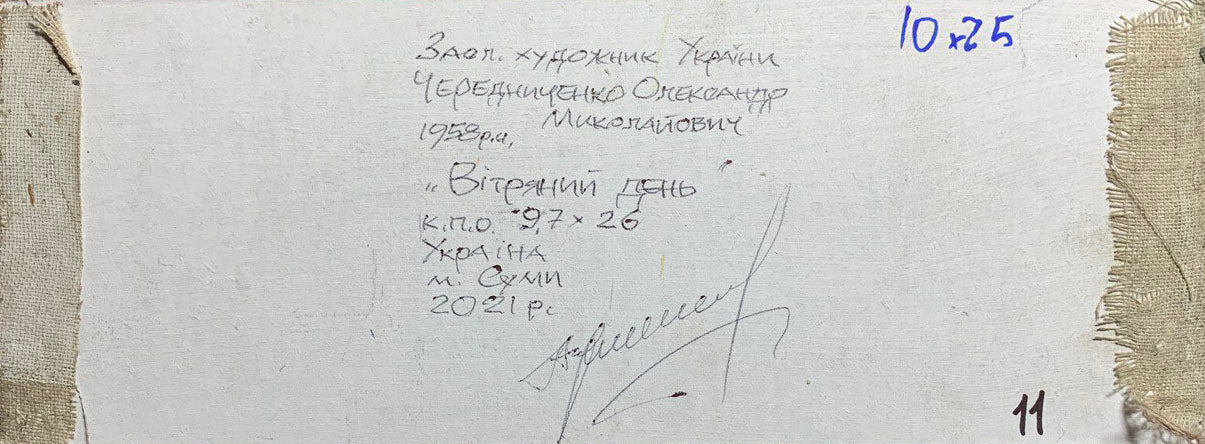 10x25
Засл. художник України
Чередниченко Олександр
Миколайович
1958р.н.
"Вітряний день"
к.п.о. 9,7x26
Україна
м. Суми
2021 р.
11